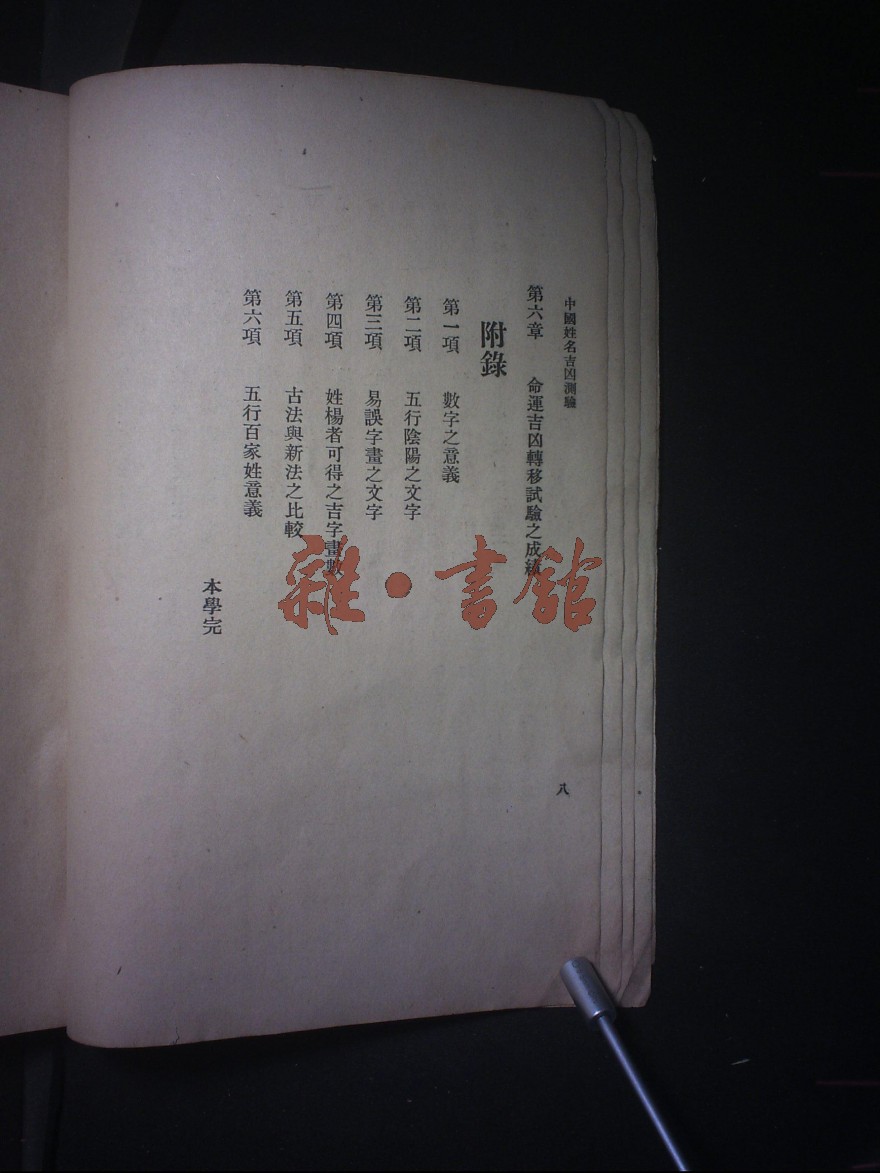 中國姓名吉凶測驗
第六章 命運吉凶轉移試驗之成績
附錄
第一項 數字之意義
第二項 五行陰陽之文字
第三項 易誤字畫之文字
第四項 姓楊者可得之吉字畫數
第五項 古法與新法之比較
第六項 五行百家姓意義
本學完
八
雜·書館